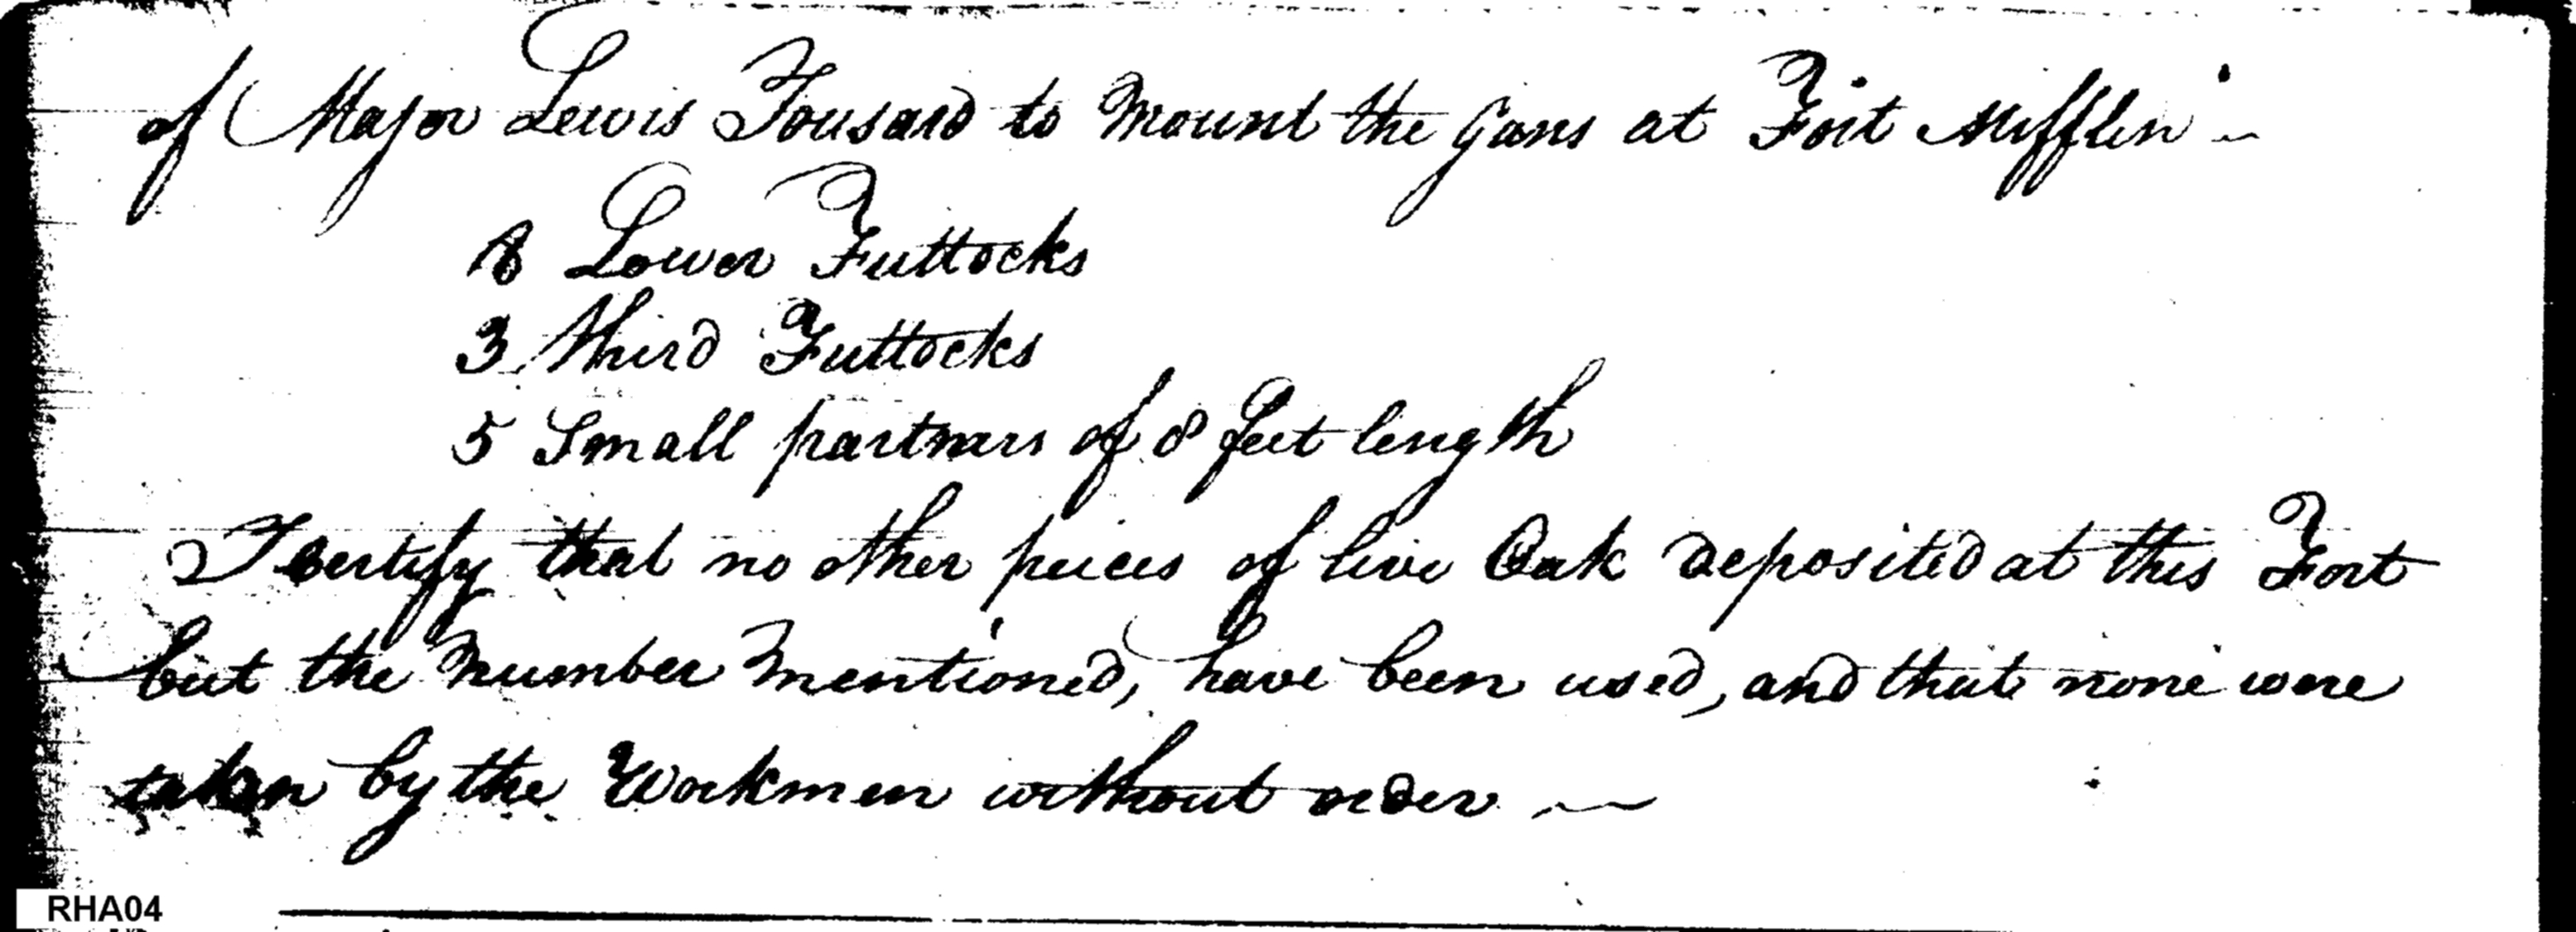 of Major Lewis Tousard to Mount the Guns at Fort Mifflin —
8 Lower Futtocks
3 third Futtocks
5 Small partners of 8 feet length
I certify that no other peices of live Oak Deposited at this Fort
but the Number Mentioned, have been used, and that none were
taken by the Workmen without order —
RHA04